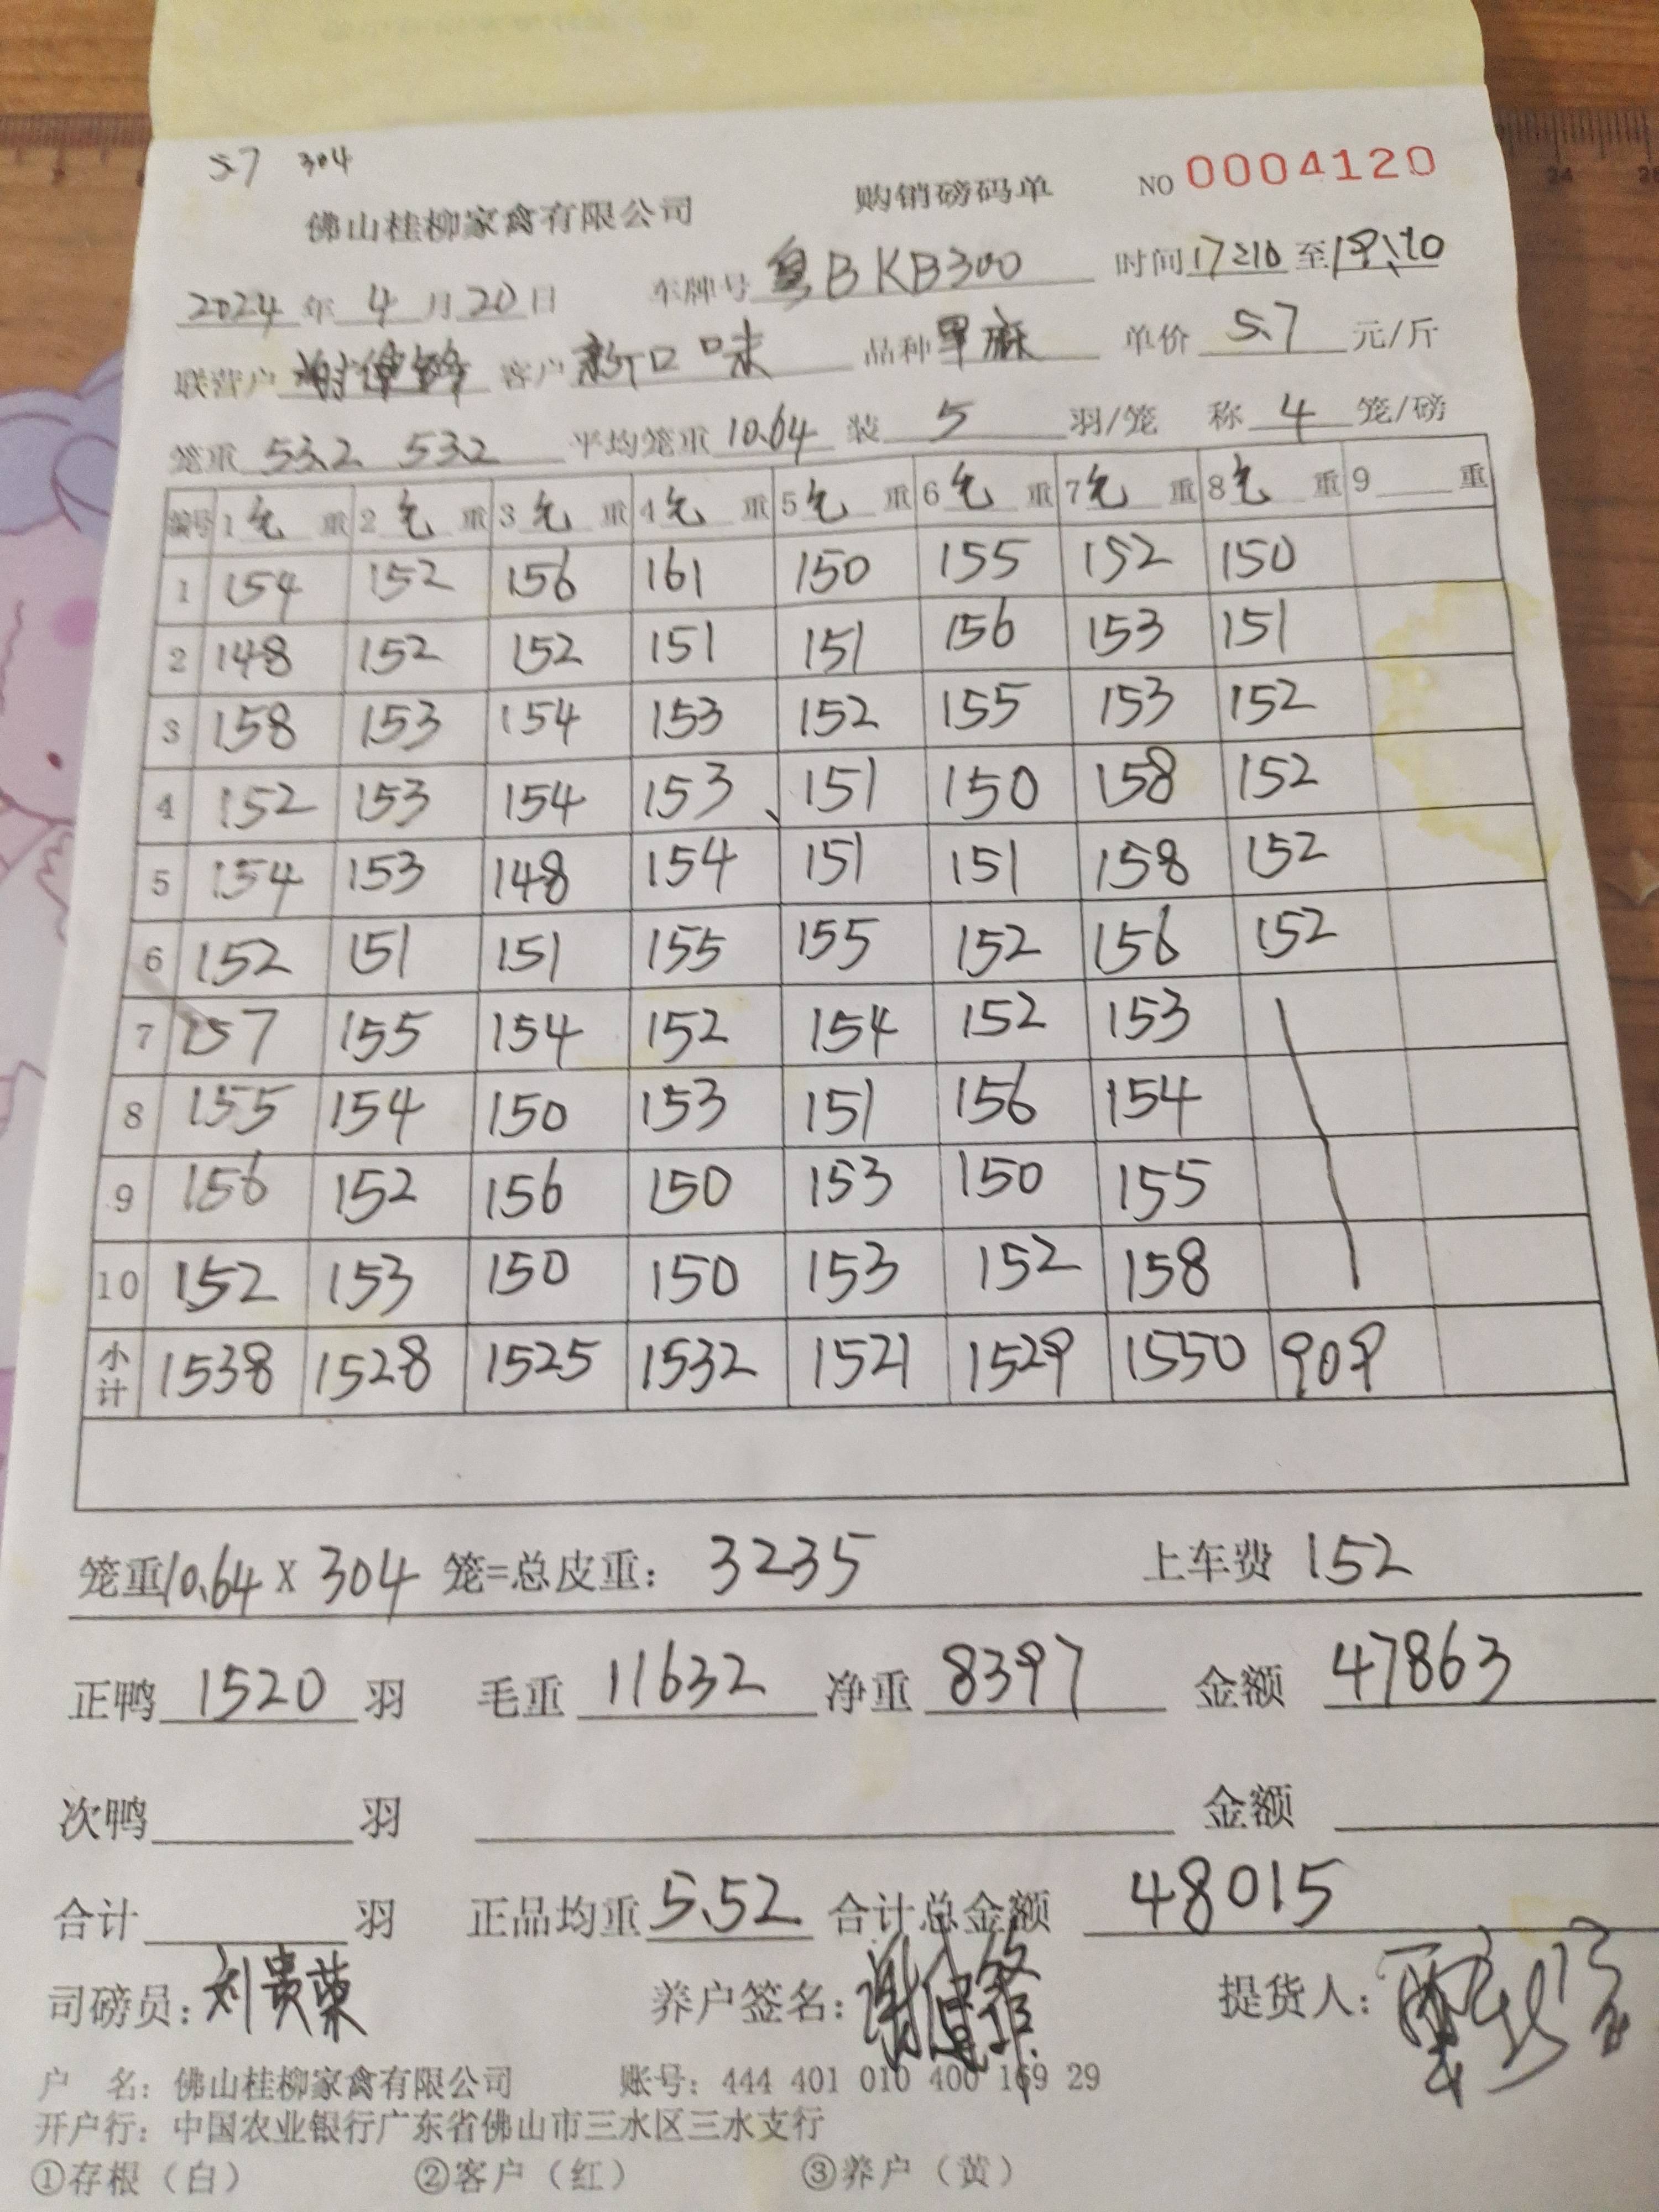 5.7 304
佛山桂柳家禽有限公司 购销磅码单 NO 0004120
2024 年 4 月 20 日 车牌号 粤B KB300 时间 17:10 至
联营户 客户 新口味 品种 单价 5.7 元/斤
笼重 53.2 53.2 平均笼重 10.64 装 5 羽/笼 称 4 笼/磅
编号 1 毛 重 2 毛 重 3 毛 重 4 毛 重 5 毛 重 6 毛 重 7 毛 重 8 毛 重 9 重
1 154 152 156 161 150 155 152 150
2 148 152 152 151 151 156 153 151
3 158 153 154 153 152 155 153 152
4 152 153 154 153 151 150 158 152
5 154 153 148 154 151 151 158 152
6 152 151 151 155 155 152 156 152
7 157 155 154 152 154 152 153
8 155 154 150 153 151 156 154
9 156 152 156 150 153 150 155
10 152 153 150 150 153 152 158
小计 1538 1528 1525 1532 1521 1529 1550 909
笼重10.64 X 304 笼=总皮重: 3235 上车费 152
正鸭 1520 羽 毛重 11632 净重 8397 金额 47863
次鸭 羽 金额
合计 羽 正品均重 5.52 合计总金额 48015
司磅员: 刘贵荣 养户签名: 提货人:
户 名: 佛山桂柳家禽有限公司 账号: 444 401 010 400 169 29
开户行: 中国农业银行广东省佛山市三水区三水支行
①存根（白） ②客户（红） ③养户（黄）